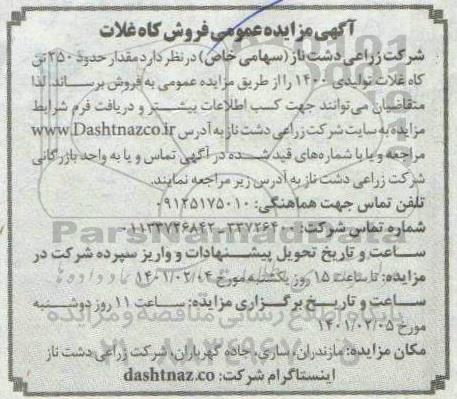 آگهی مزایده عمومی فروش کاه غلات
شرکت زراعی دشت ناز (سهامی خاص) در نظر دارد مقدار حدود ۲۵۰ تن
کاه غلات تولیدی ۱۴۰۰ را از طریق مزایده عمومی به فروش برساند. لذا
متقاضیان می‌توانند جهت کسب اطلاعات بیشتر و دریافت فرم شرایط
مزایده به سایت شرکت زراعی دشت ناز به آدرس www.Dashtnazco.ir
مراجعه و یا با شماره‌های قید شده در آگهی تماس و یا به واحد بازرگانی
شرکت زراعی دشت ناز به آدرس زیر مراجعه نمایند.
تلفن تماس جهت هماهنگی: ۰۹۱۲۵۱۷۵۰۱۰
شماره تماس شرکت: ۳۳۷۲۶۴۰۰ ـ ۰۱۱۳۳۷۲۶۸۴۲
ساعت و تاریخ تحویل پیشنهادات و واریز سپرده شرکت در
مزایده: تا ساعت ۱۵ روز یکشنبه مورخ ۱۴۰۱/۰۲/۰۴
ساعت و تاریخ برگزاری مزایده: ساعت ۱۱ روز دوشنبه
مورخ ۱۴۰۱/۰۲/۰۵
مکان مزایده: مازندران، ساری، جاده گهرباران، شرکت زراعی دشت ناز
اینستاگرام شرکت: dashtnaz.co
ParsNamadData
پایگاه اطلاع رسانی مناقصه و مزایده